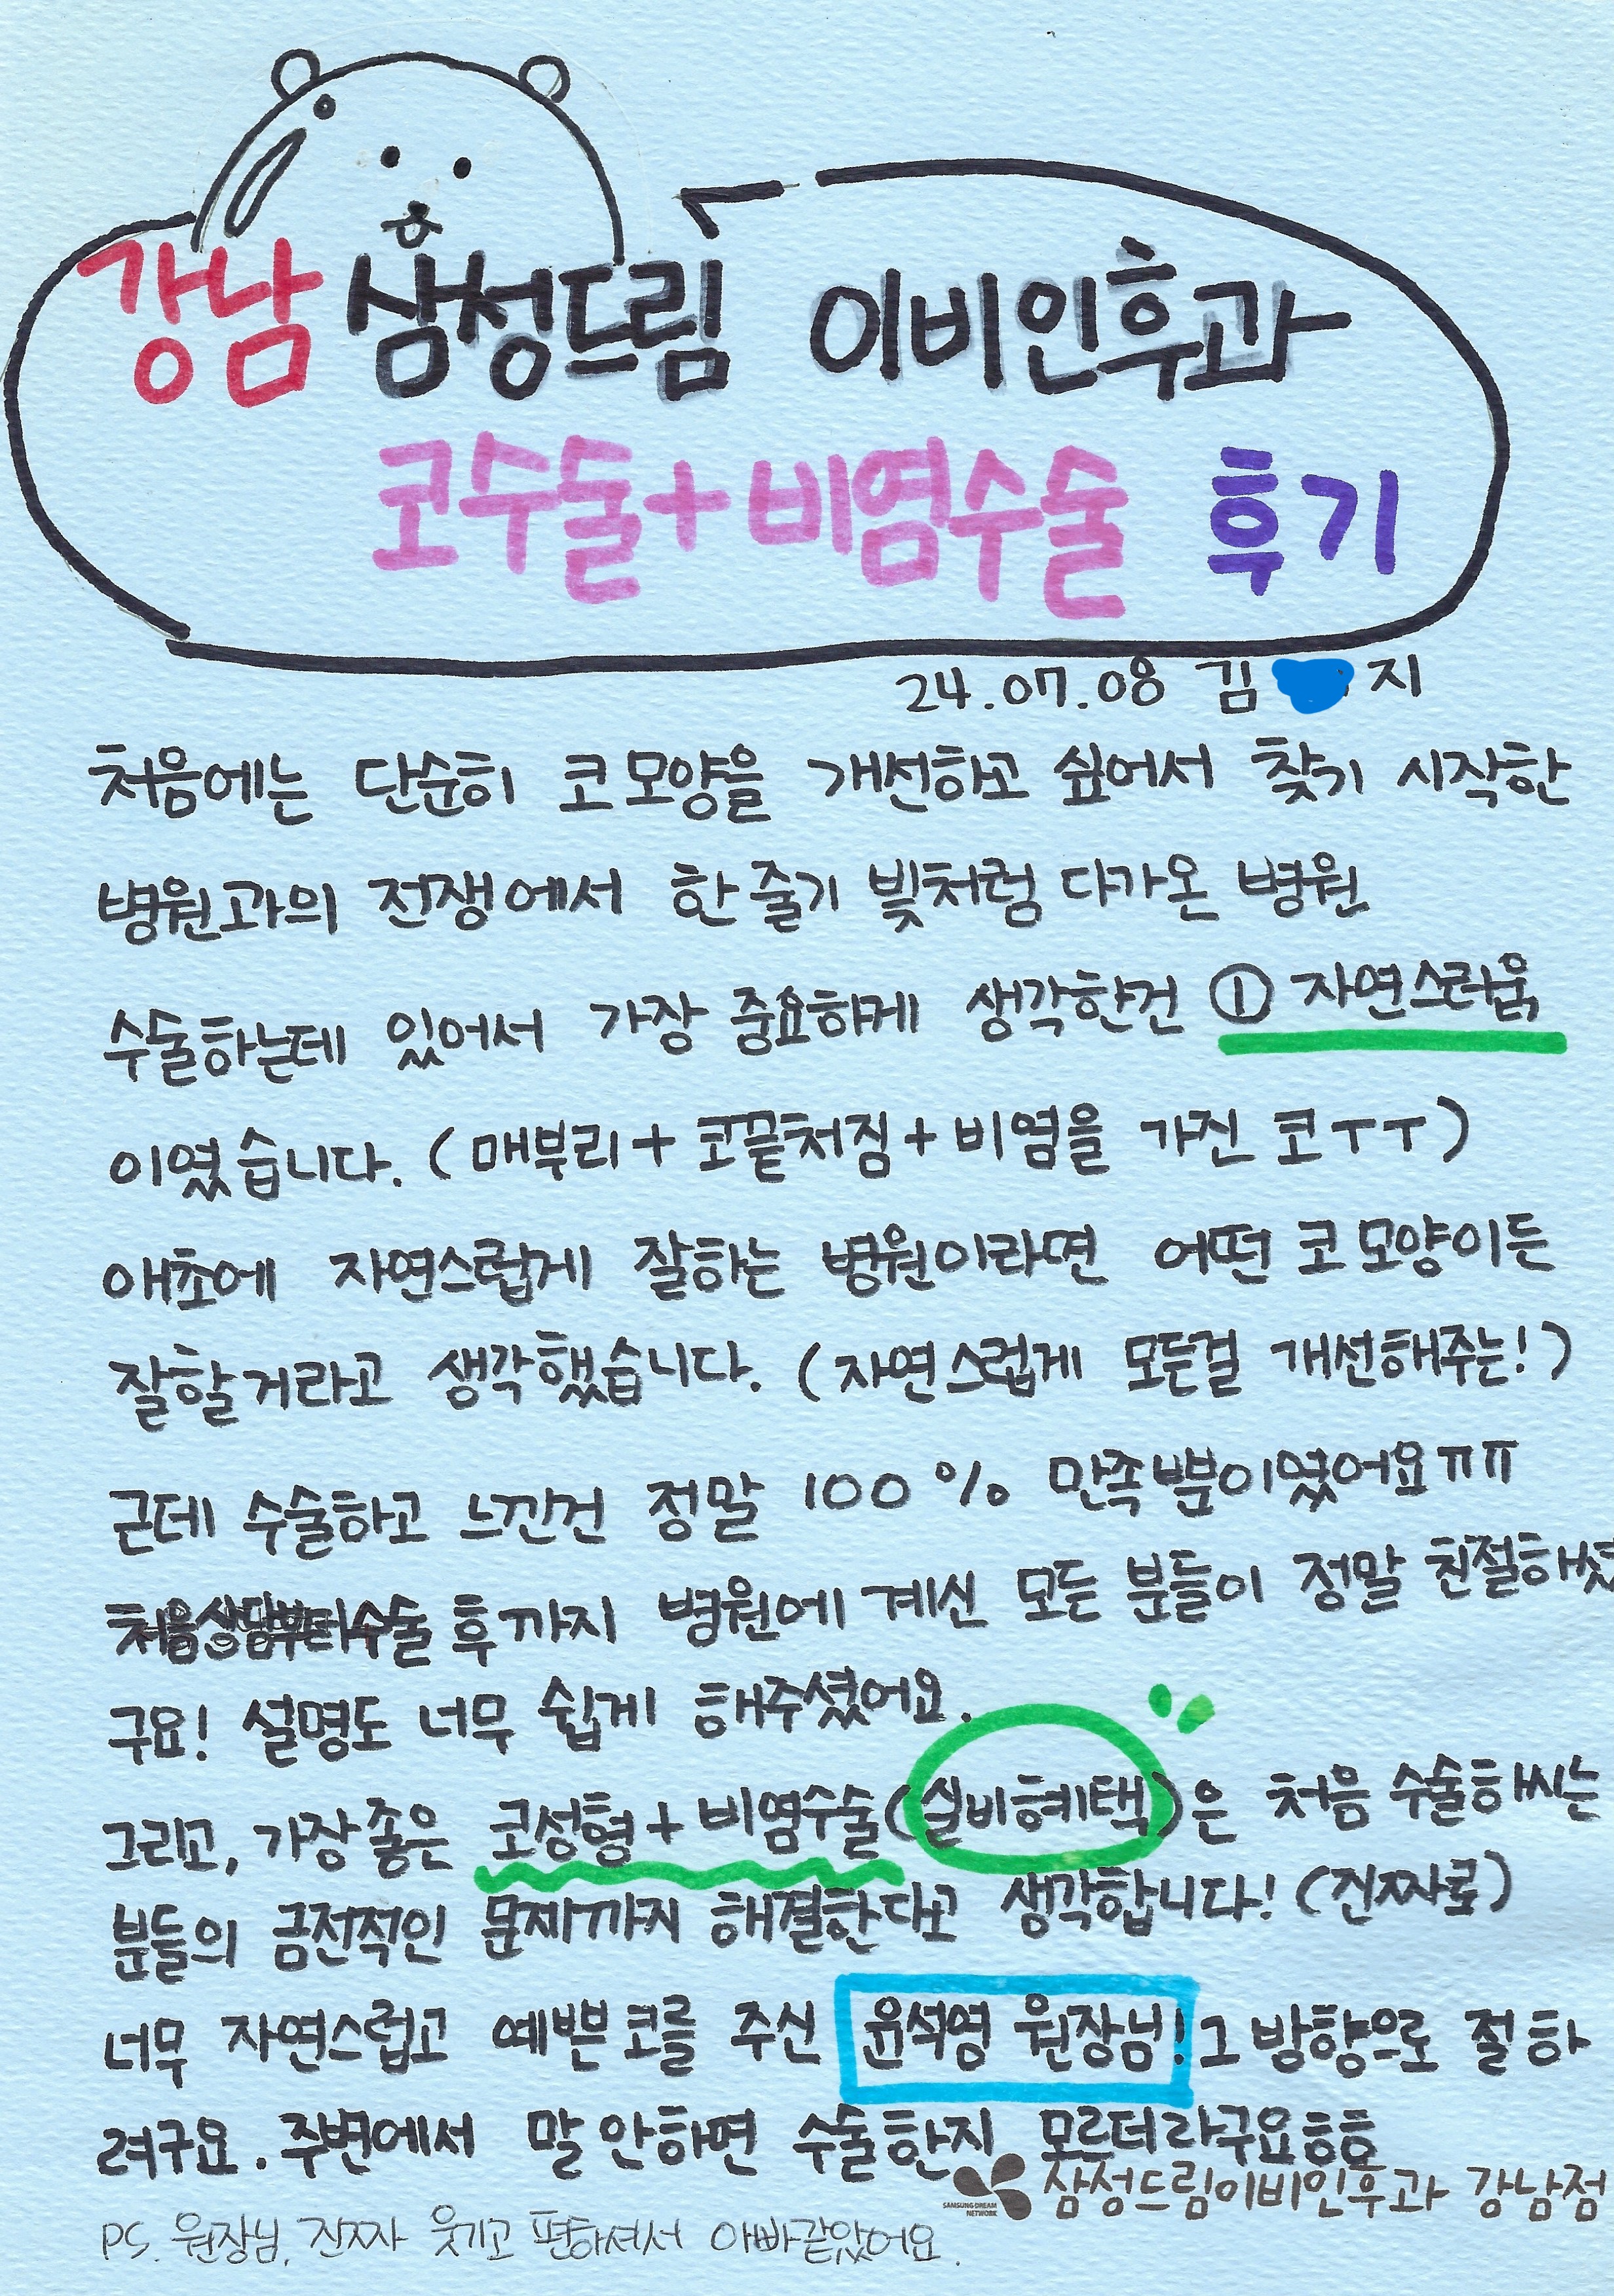 강남 삼성드림 이비인후과
코수술+비염수술 후기
24.07.08 김 지
처음에는 단순히 코 모양을 개선하고 싶어서 찾기 시작한
병원과의 전쟁에서 한 줄기 빛처럼 다가온 병원
수술하는데 있어서 가장 중요하게 생각한건 ① 자연스러움
이였습니다. (매부리+코끝처짐+비염을 가진 코ㅜㅜ)
애초에 자연스럽게 잘하는 병원이라면 어떤 코 모양이든
잘할거라고 생각했습니다. (자연스럽게 모든걸 개선해주는!)
근데 수술하고 느낀건 정말 100% 만족뿐이였어요ㅠㅠ
처음상담부터수술 후까지 병원에 계신 모든 분들이 정말 친절하셨
구요! 설명도 너무 쉽게 해주셨어요.
그리고, 가장 좋은 코성형+비염수술(실비혜택)은 처음 수술하시는
분들의 금전적인 문제까지 해결한다고 생각합니다! (진짜로)
너무 자연스럽고 예쁜 코를 주신 윤석영 원장님! 그 방향으로 절 하
려구요. 주변에서 말 안하면 수술한지 모르더라구요흠흠
SAMSUNG DREAM NETWORK 삼성드림이비인후과 강남점
PS. 원장님, 진짜 웃기고 편하셔서 아빠같았어요.